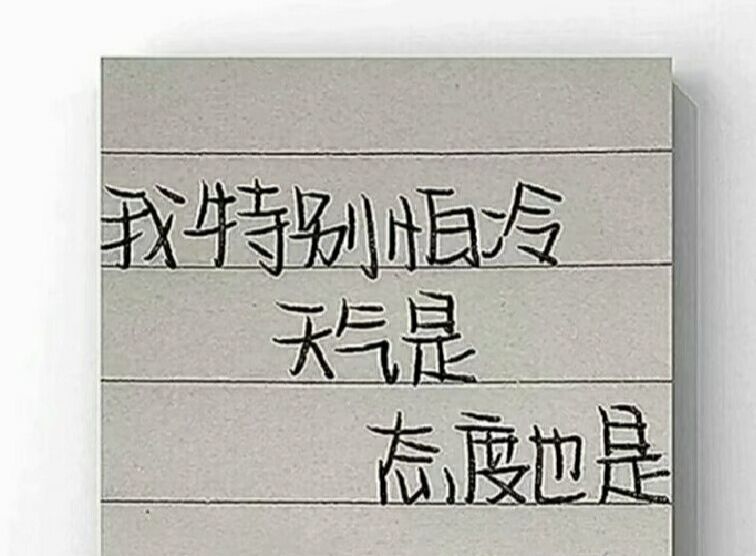 我特别怕冷
天气是
态度也是